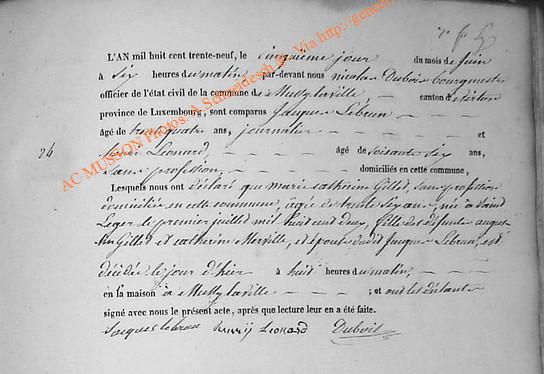 L'AN mil huit cent trente-neuf, le cinquième jour du mois de juin
à six heures du matin par-devant nous nicolas Dubois bourgmestre
officier de l'état civil de la commune de Mussy la ville canton de Virton
province de Luxembourg, sont comparus Jacques Lebrun
âgé de trente quatre ans, journalier et
24
henri Leonard âgé de soixante six ans,
sans profession, domiciliés en cette commune,
Lesquels nous ont déclaré que marie catherine Gillet, sans profession
domiciliée en cette commune, agée de trente six ans, née à Saint
Leger le premier juillet mil huit cent deux, fille de défunts august
Gillet et catherine Merville, et épouse dudit Jacques Lebrun, est
décédée le jour d'hier à huit heures du matin,
en la maison à Mussy la ville ; et ont les déclarants
signé avec nous le présent acte, après que lecture leur en a été faite.
Jacques lebrun henrij Leonard Dubois
AC MUSSON Photos: A. Schneidesch Via http://gen